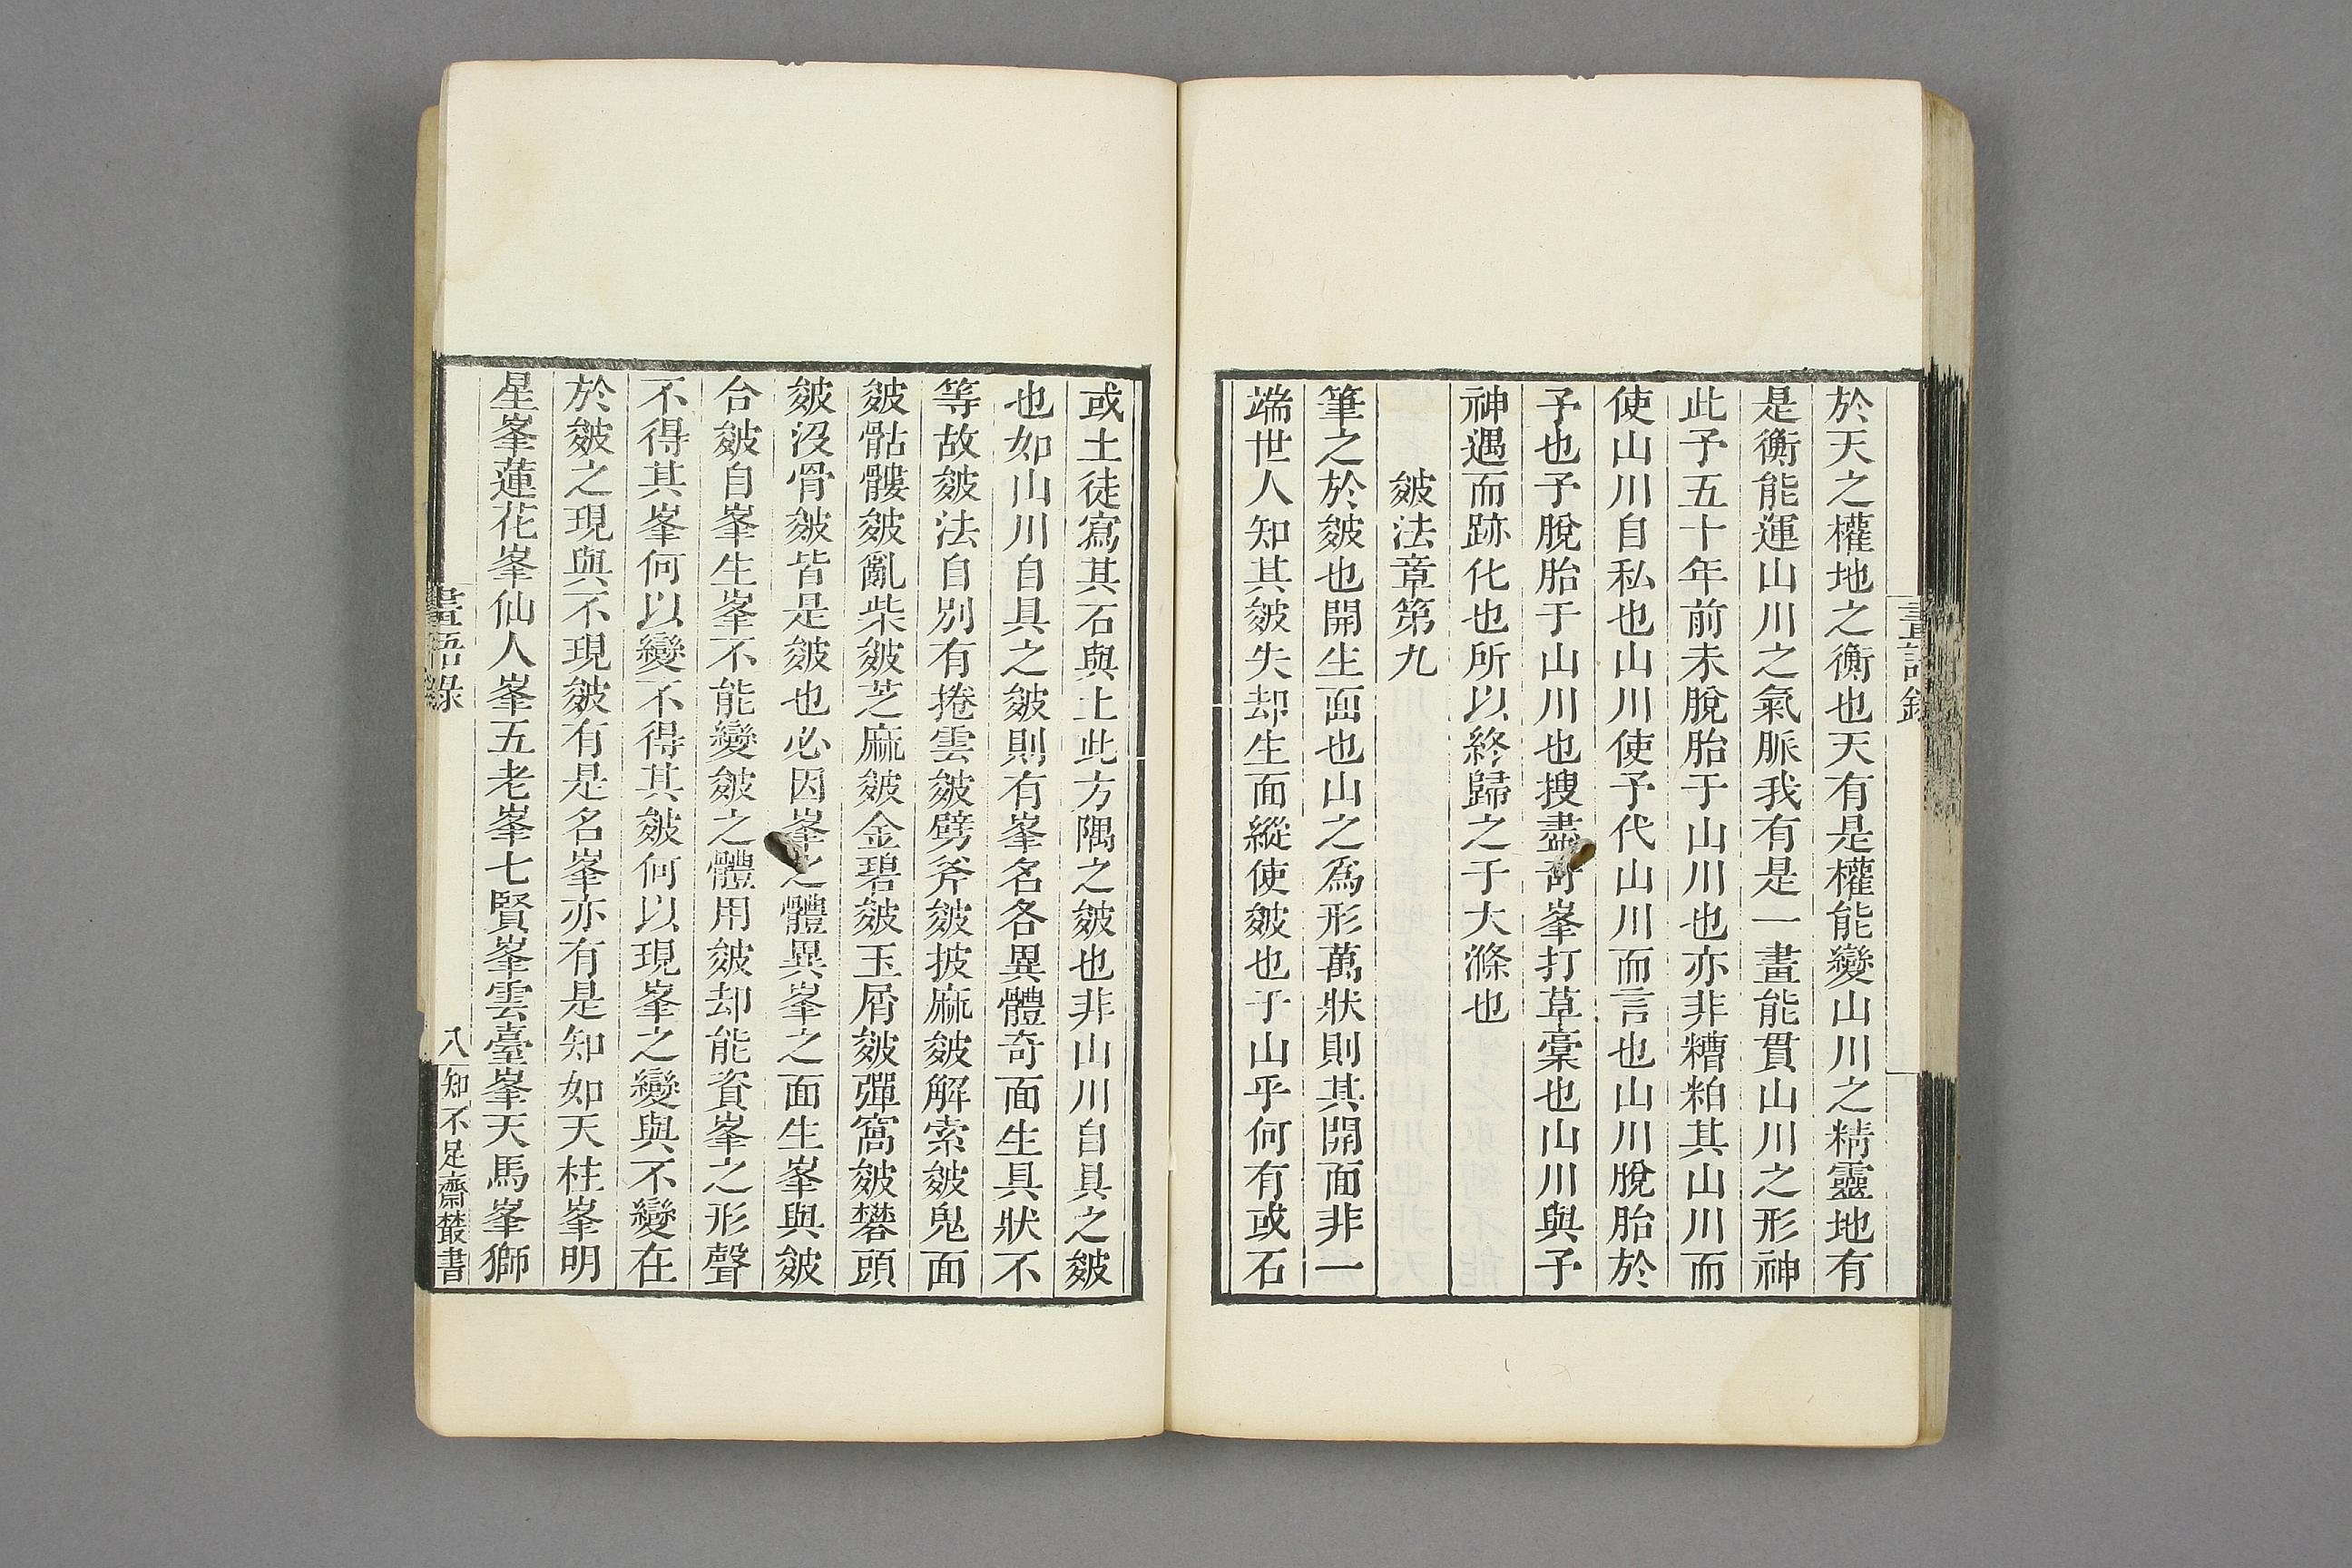 於天之權地之衡也天有是權能變山川之精靈地有
是衡能運山川之氣脈我有是一畫能貫山川之形神
此予五十年前未脫胎于山川也亦非糟粕其山川而
使山川自私也山川使予代山川而言也山川脫胎於
予也予脫胎于山川也搜盡奇峯打草稾也山川與予
神遇而跡化也所以終歸之于大滌也
皴法章第九
筆之於皴也開生面也山之爲形萬狀則其開面非一
端世人知其皴失却生面縱使皴也于山乎何有或石
或土徒寫其石與土此方隅之皴也非山川自具之皴
也如山川自具之皴則有峯名各異體奇面生具狀不
等故皴法自別有捲雲皴劈斧皴披麻皴解索皴鬼面
皴骷髏皴亂柴皴芝麻皴金碧皴玉屑皴彈窩皴礬頭
皴沒骨皴皆是皴也必因峯之體異峯之面生峯與皴
合皴自峯生峯不能變皴之體用皴却能資峯之形聲
不得其峯何以變不得其皴何以現峯之變與不變在
於皴之現與不現皴有是名峯亦有是知如天柱峯明
星峯蓮花峯仙人峯五老峯七賢峯雲臺峯天馬峯獅
畫語錄
八
知不足齋叢書